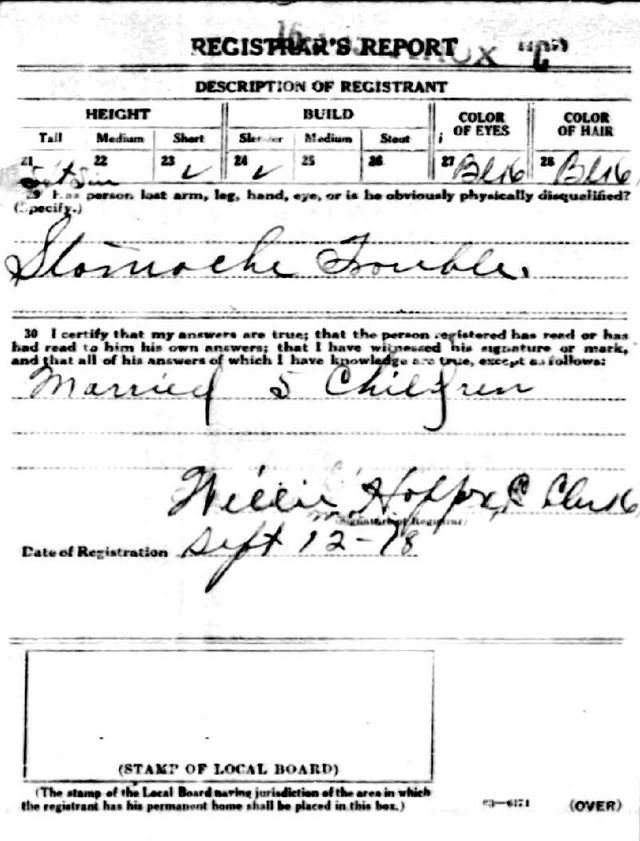 REGISTRAR'S REPORT
DESCRIPTION OF REGISTRANT
HEIGHT BUILD COLOR OF EYES COLOR OF HAIR
Tall Medium Short Slender Medium Stout
21 22 23 ✓ 24 ✓ 25 26 27 Blk 28 Blk
29 Has person lost arm, leg, hand, eye, or is he obviously physically disqualified?
(Specify.)
Stomache Trouble.
30 I certify that my answers are true; that the person registered has read or has
had read to him his own answers; that I have witnessed his signature or mark,
and that all of his answers of which I have knowledge are true, except as follows:
Married 5 Children
Willie Clerk
(Signature of Registrar)
Date of Registration Sept 12-18
(STAMP OF LOCAL BOARD)
(The stamp of the Local Board having jurisdiction of the area in which
the registrant has his permanent home shall be placed in this box.)
03-6171 (OVER)